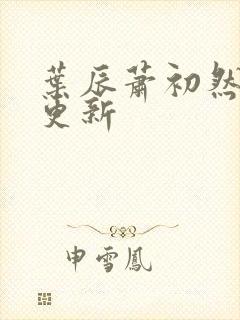 葉辰蕭初然
更新
申雪鳳